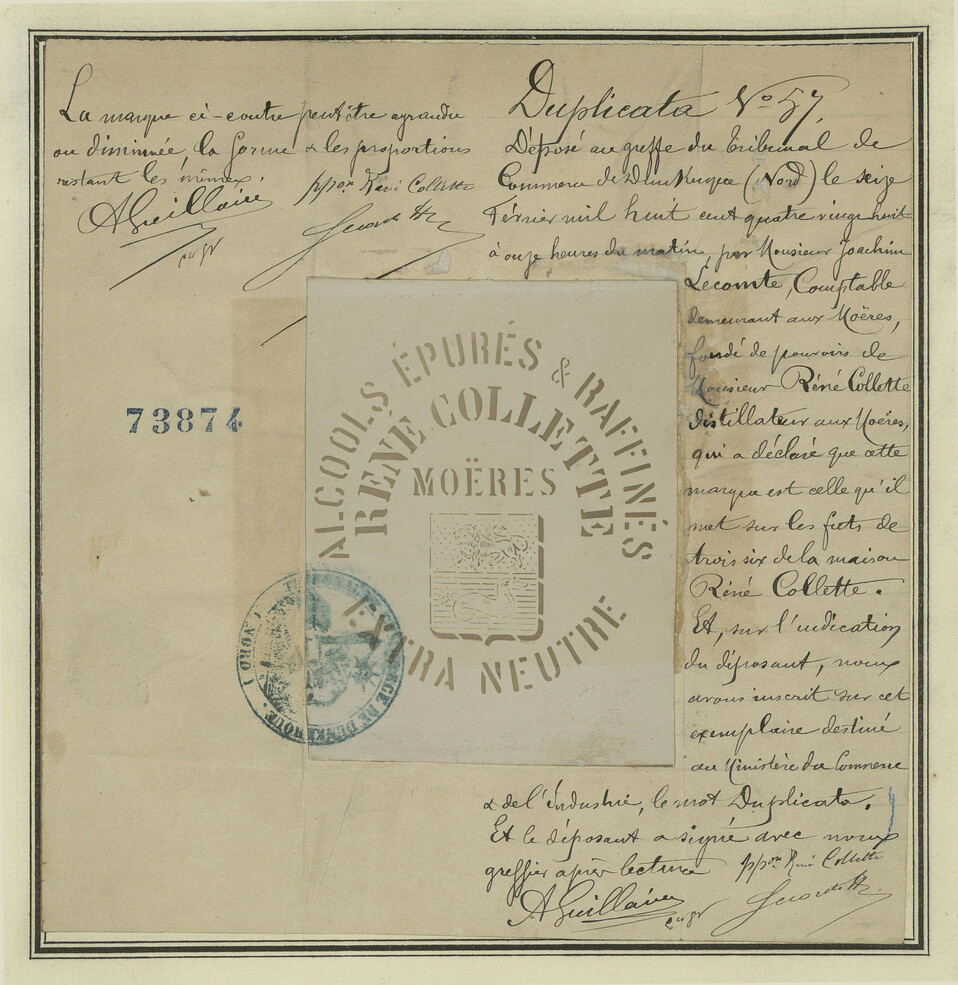 La marque ci-contre peut être agrandie
ou diminuée, la forme & les proportions
restant les mêmes.
ppon René Collette
AGuillain
cgr
Duplicata No 57.
Déposé au greffe du Tribunal de
Commerce de Dunkerque (Nord) le seize
Février mil huit cent quatre vingt huit
à onze heures du matin, par Monsieur Joachim
Lecomte, Comptable
demeurant aux Moëres,
fondé de pouvoirs de
Monsieur Réné Collette
distillateur aux Moëres,
qui a déclaré que cette
marque est celle qu'il
met sur les futs de
trois six de la maison
Réné Collette.
Et, sur l'indication
du déposant, nous
avons inscrit sur cet
exemplaire destiné
au Ministère du Commerce
& de l'Industrie, le mot Duplicata.
Et le déposant a signé avec nous
greffier après lecture
ppon René Collette
AGuillain
cgr
73874
ALCOOLS ÉPURÉS & RAFFINÉS
RENÉ COLLETTE
MOËRES
EXTRA NEUTRE
DE DUNKERQUE.
(NORD)